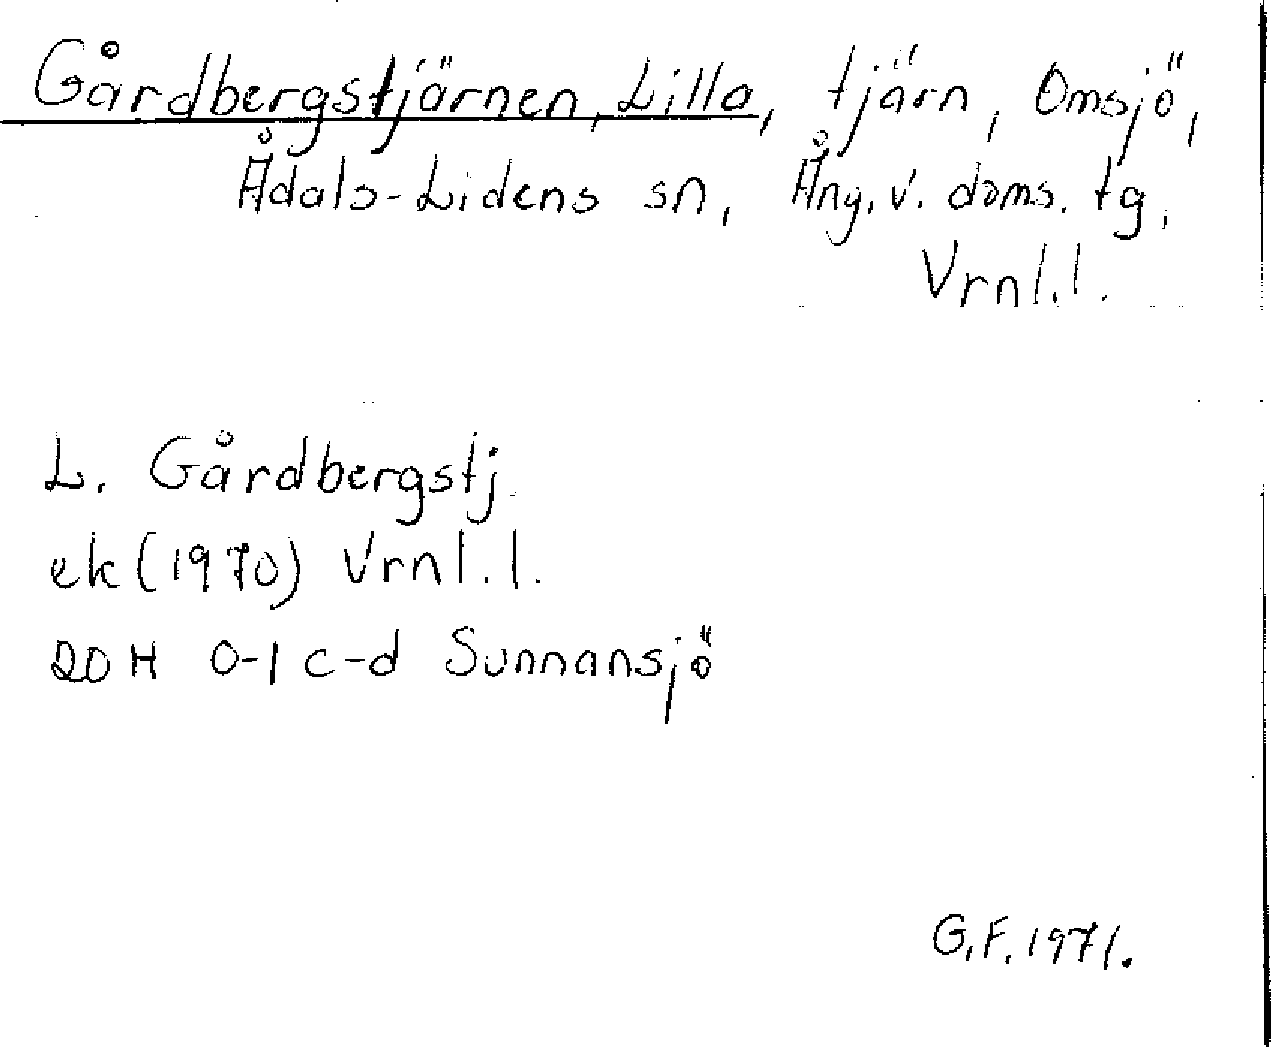 Gårdbergstjärnen, Lilla, tjärn, Omsjö,
Ådals-Lidens sn, Ång. v. doms. tg,
Vrnl.l.
L. Gårdbergstj.
ek (1970) Vrnl.l.
20 H 0-1 c-d Sunnansjö
G.F. 1971.